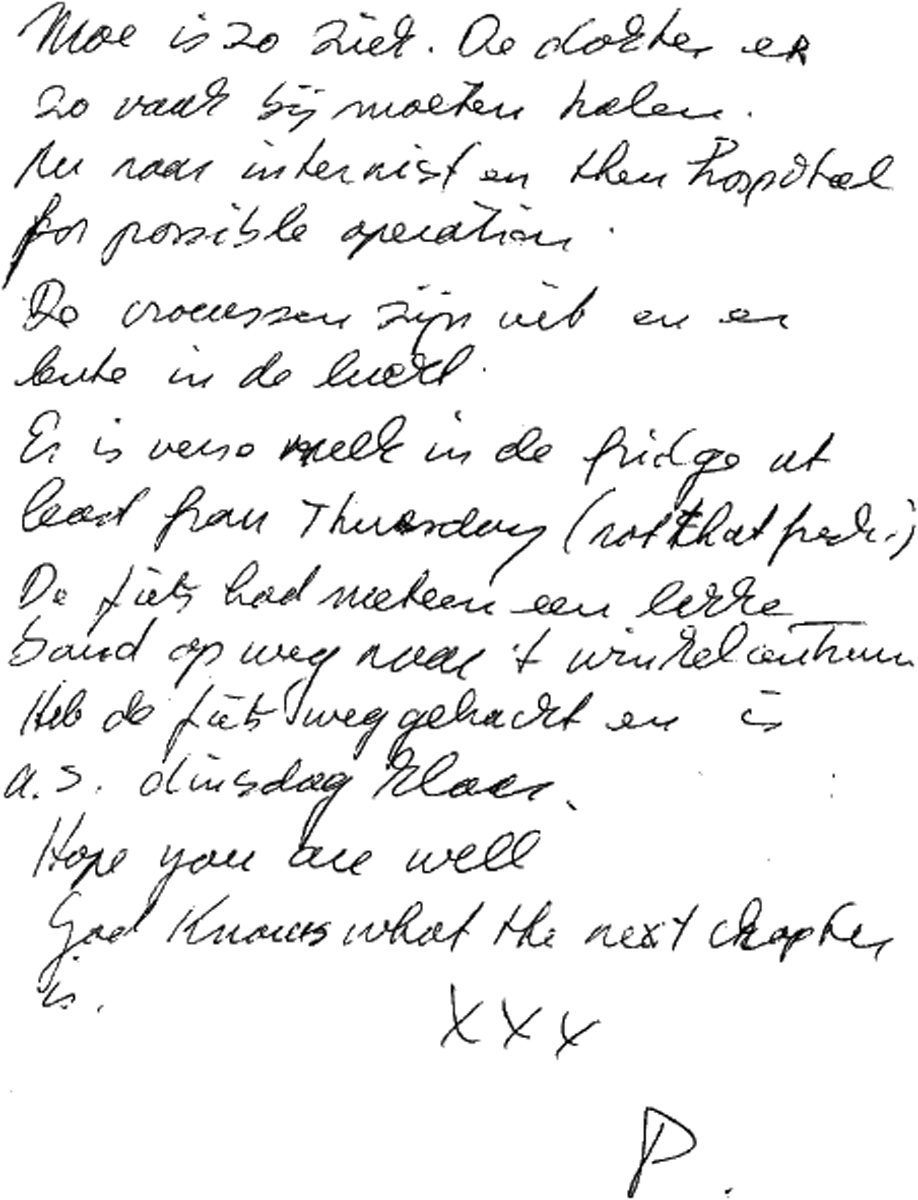 Moe is zo ziek. De dokter er
zo vaak bij moeten halen.
Nu naar internist en then hospital
for possible operation.
De crocussen zijn uit en er
lente in de lucht.
Er is verse melk in de fridge at
least from Thursday (not that fresh.)
De fiets had meteen een lekke
band op weg naar 't winkelcentrum
Heb de fiets weggebracht en is
a.s. dinsdag klaar.
Hope you are well
God knows what the next chapter
is.
XXX
P.